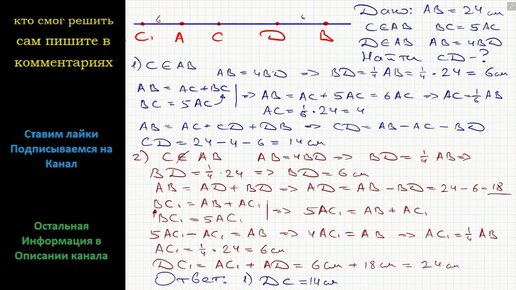 кто смог решить
сам пишите в
комментариях
Ставим лайки
Подписываемся на
Канал
Остальная
Информация в
Описании канала
6 6
C₁ A C D B
Дано: AB = 24 см
C∈AB BC = 5AC
D∈AB AB = 4BD
Найти CD-?
1) C∈AB
AB = 4BD => BD = 1/4 AB = 1/4 · 24 = 6 см
AB = AC + BC
BC = 5AC
=> AB = AC + 5AC = 6AC => AC = 1/6 AB
AC = 1/6 · 24 = 4
AB = AC + CD + DB => CD = AB - AC - BD
CD = 24 - 4 - 6 = 14 см
2) C∉AB AB = 4BD => BD = 1/4 AB =>
BD = 1/4 · 24 => BD = 6 см
AB = AD + BD => AD = AB - BD = 24 - 6 = 18
BC₁ = AB + AC₁
BC₁ = 5AC₁
=> 5AC₁ = AB + AC₁
5AC₁ - AC₁ = AB => 4AC₁ = AB => AC₁ = 1/4 AB
AC₁ = 1/4 · 24 = 6 см
DC₁ = AC₁ + AD = 6 см + 18 см = 24 см
Ответ: 1) DC = 14 см